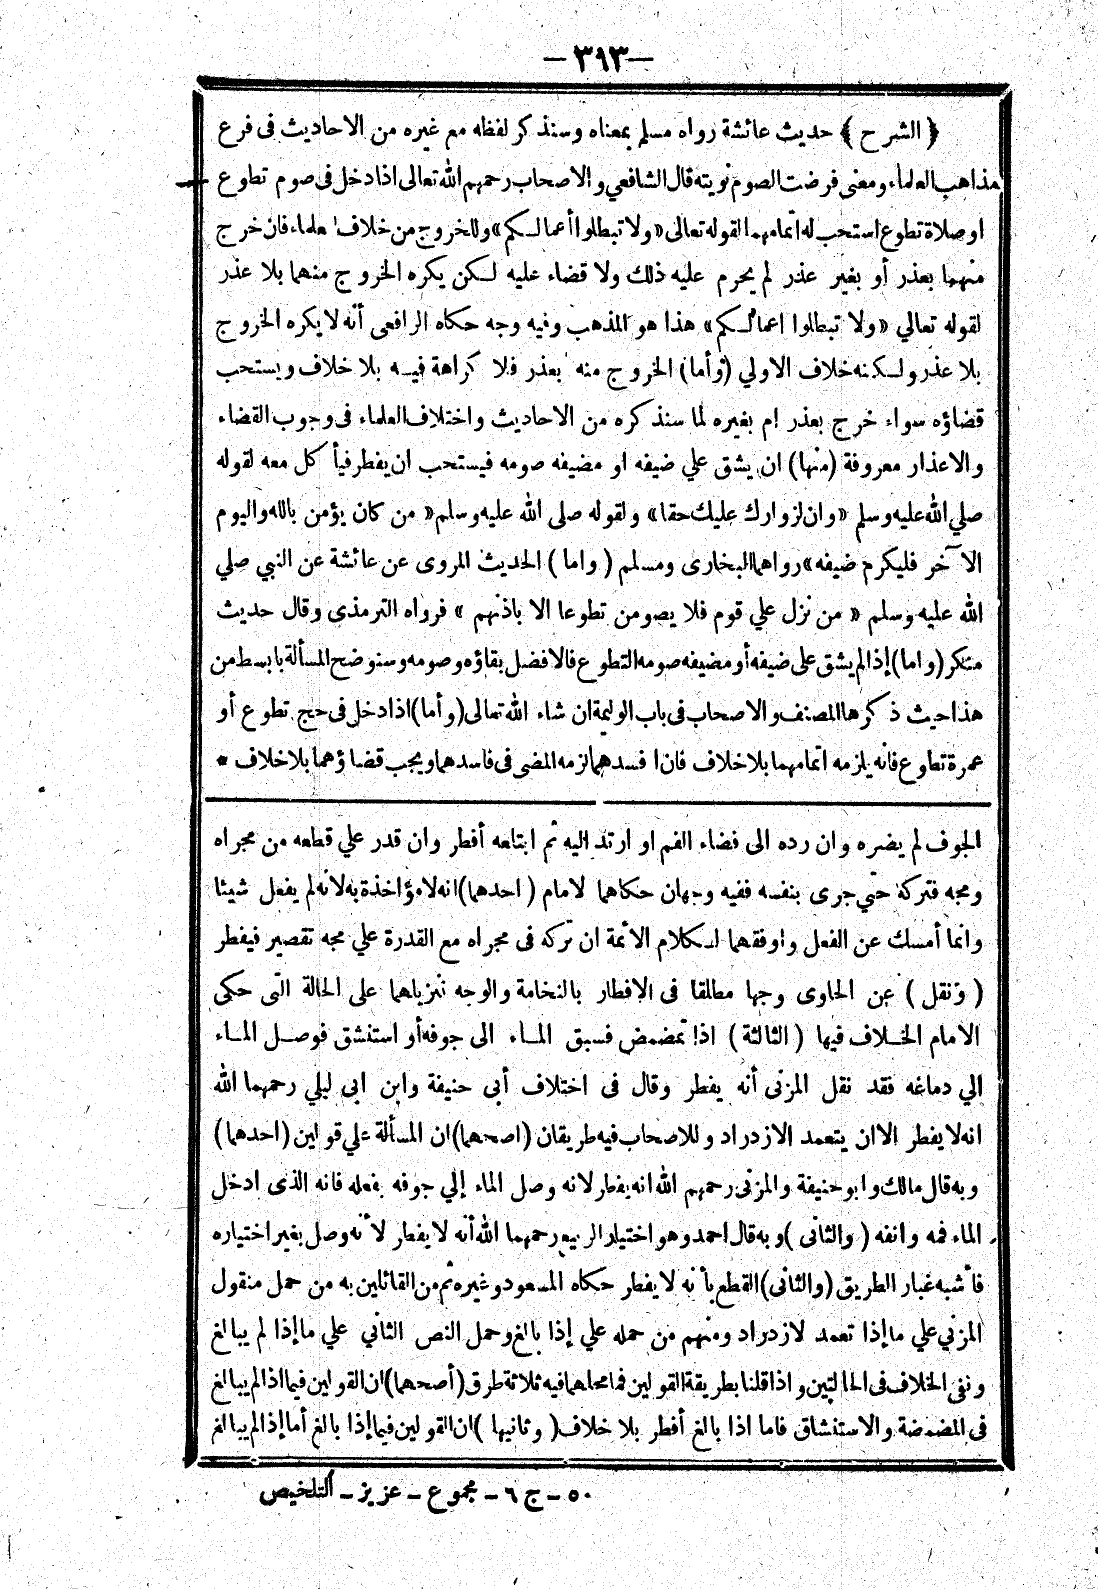 — ٣٩٣ —
﴿ الشرح ﴾ حديث عائشة رواه مسلم بمعناه وسنذكر لفظه مع غيره من الاحاديث فى فرع
مذاهب العلماء ومعنى فرضت الصوم نويته قال الشافعي والاصحاب رحمهم الله تعالى اذا دخل فى صوم تطوع
او صلاة تطوع استحب له اتمامهما لقوله تعالى «ولا تبطلوا أعمالكم» وللخروج من خلاف العلماء فان خرج
منهما بعذر أو بغير عذر لم يحرم عليه ذلك ولا قضاء عليه لكن يكره الخروج منهما بلا عذر
لقوله تعالي «ولا تبطلوا اعمالكم» هذا هو المذهب وفيه وجه حكاه الرافعى أنه لا يكره الخروج
بلا عذر ولكنه خلاف الاولي (وأما) الخروج منه بعذر فلا كراهة فيه بلا خلاف ويستحب
قضاؤه سواء خرج بعذر ام بغيره لما سنذكره من الاحاديث واختلاف العلماء فى وجوب القضاء
والاعذار معروفة (منها) ان يشق علي ضيفه او مضيفه صومه فيستحب ان يفطر فيأكل معه لقوله
صلي الله عليه وسلم «وان لزوارك عليك حقا» ولقوله صلى الله عليه وسلم « من كان يؤمن بالله واليوم
الآخر فليكرم ضيفه» رواهما البخارى ومسلم (واما) الحديث المروى عن عائشة عن النبي صلي
الله عليه وسلم « من نزل علي قوم فلا يصومن تطوعا الا باذنهم » فرواه الترمذى وقال حديث
منكر (واما) إذا لم يشق على ضيفه أو مضيفه صومه التطوع فالافضل بقاؤه وصومه وسنوضح المسألة بابسط من
هذا حيث ذكرها المصنف والاصحاب فى باب الوليمة ان شاء الله تعالى (وأما) اذا دخل فى حج تطوع أو
عمرة تطوع فانه يلزمه اتمامهما بلا خلاف فان افسدهما لزمه المضى فى فاسدهما ويجب قضاؤهما بلا خلاف *
الجوف لم يضره وان رده الى فضاء الفم او ارتد اليه ثم ابتلعه أفطر وان قدر علي قطعه من مجراه
ومجه فتركه حتي جرى بنفسه ففيه وجهان حكاهما لامام (احدهما) انه لا مؤاخذة به لانه لم يفعل شيئا
وانما أمسك عن الفعل واوفقهما لكلام الائمة ان تركه فى مجراه مع القدرة علي مجه تقصير فيفطر
( ونقل ) عن الحاوى وجها مطلقا فى الافطار بالنخامة والوجه تنزيلهما على الحالة التى حكى
الامام الخلاف فيها ( الثالثة ) اذا تمضمض فسبق الماء الى جوفه أو استنشق فوصل الماء
الي دماغه فقد نقل المزنى أنه يفطر وقال فى اختلاف أبى حنيفة وابن ابى ليلي رحمهما الله
انه لا يفطر الا ان يتعمد الازدراد وللاصحاب فيه طريقان (اصحهما) ان المسألة علي قولين (احدهما)
وبه قال مالك وابو حنيفة والمزنى رحمهم الله انه يفطر لانه وصل الماء إلي جوفه بفعله فانه الذى ادخل
الماء فمه وانفه (والثانى) وبه قال احمد وهو اختيار الربيع رحمهما الله أنه لا يفطر لأنه وصل بغير اختياره
فأشبه غبار الطريق (والثانى) القطع بأنه لا يفطر حكاه المسعود وغيره ثم من القائلين به من حمل منقول
المزني علي ما إذا تعمد لازدراد ومنهم من حمله علي إذا بالغ وحمل النص الثاني علي ما إذا لم يبالغ
ونفى الخلاف فى الحالتين واذا قلنا بطريقة القولين فما محلهما فيه ثلاثة طرق (أصحها) ان القولين فيما اذا لم يبالغ
فى المضمضة والاستنشاق فاما اذا بالغ أفطر بلا خلاف (وثانيها) ان القولين فيما إذا بالغ أما إذا لم يبالغ
٥٠ ــ ج ٦ ــ مجموع ــ عزيز ــ التلخيص